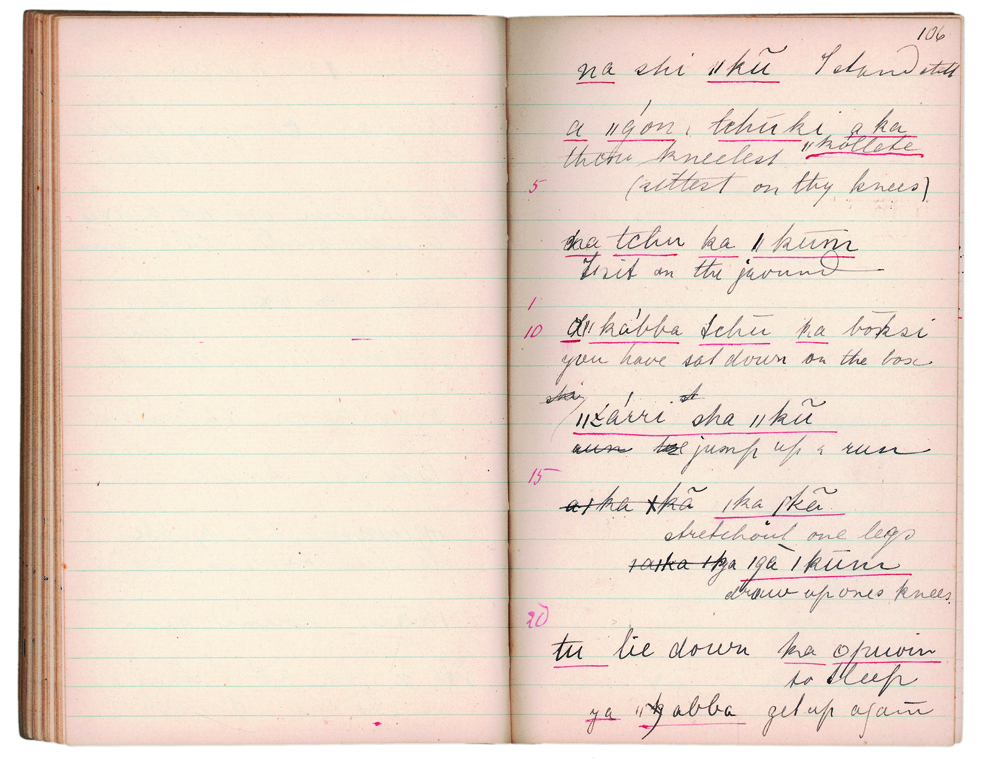 106
na shi ǁkũ I stand still
a ǁgón, tchūki, a ka
thou kneelest ǁkóllete
5 (sittest on thy knees)
tchu ka ǁkūm
I sit on the ground
1
10 a ǁkábba tchū ka boksi
you have sat down on the box
shi
sha ǁkũ
run jump up & run
15
a ǀka kã ǀka ʃkã
stretch out one legs
ǀgà ǀkūm
draw up ones knees.
20
tu lie down ka opuoin
to sleep
ya ǁkabba get up again